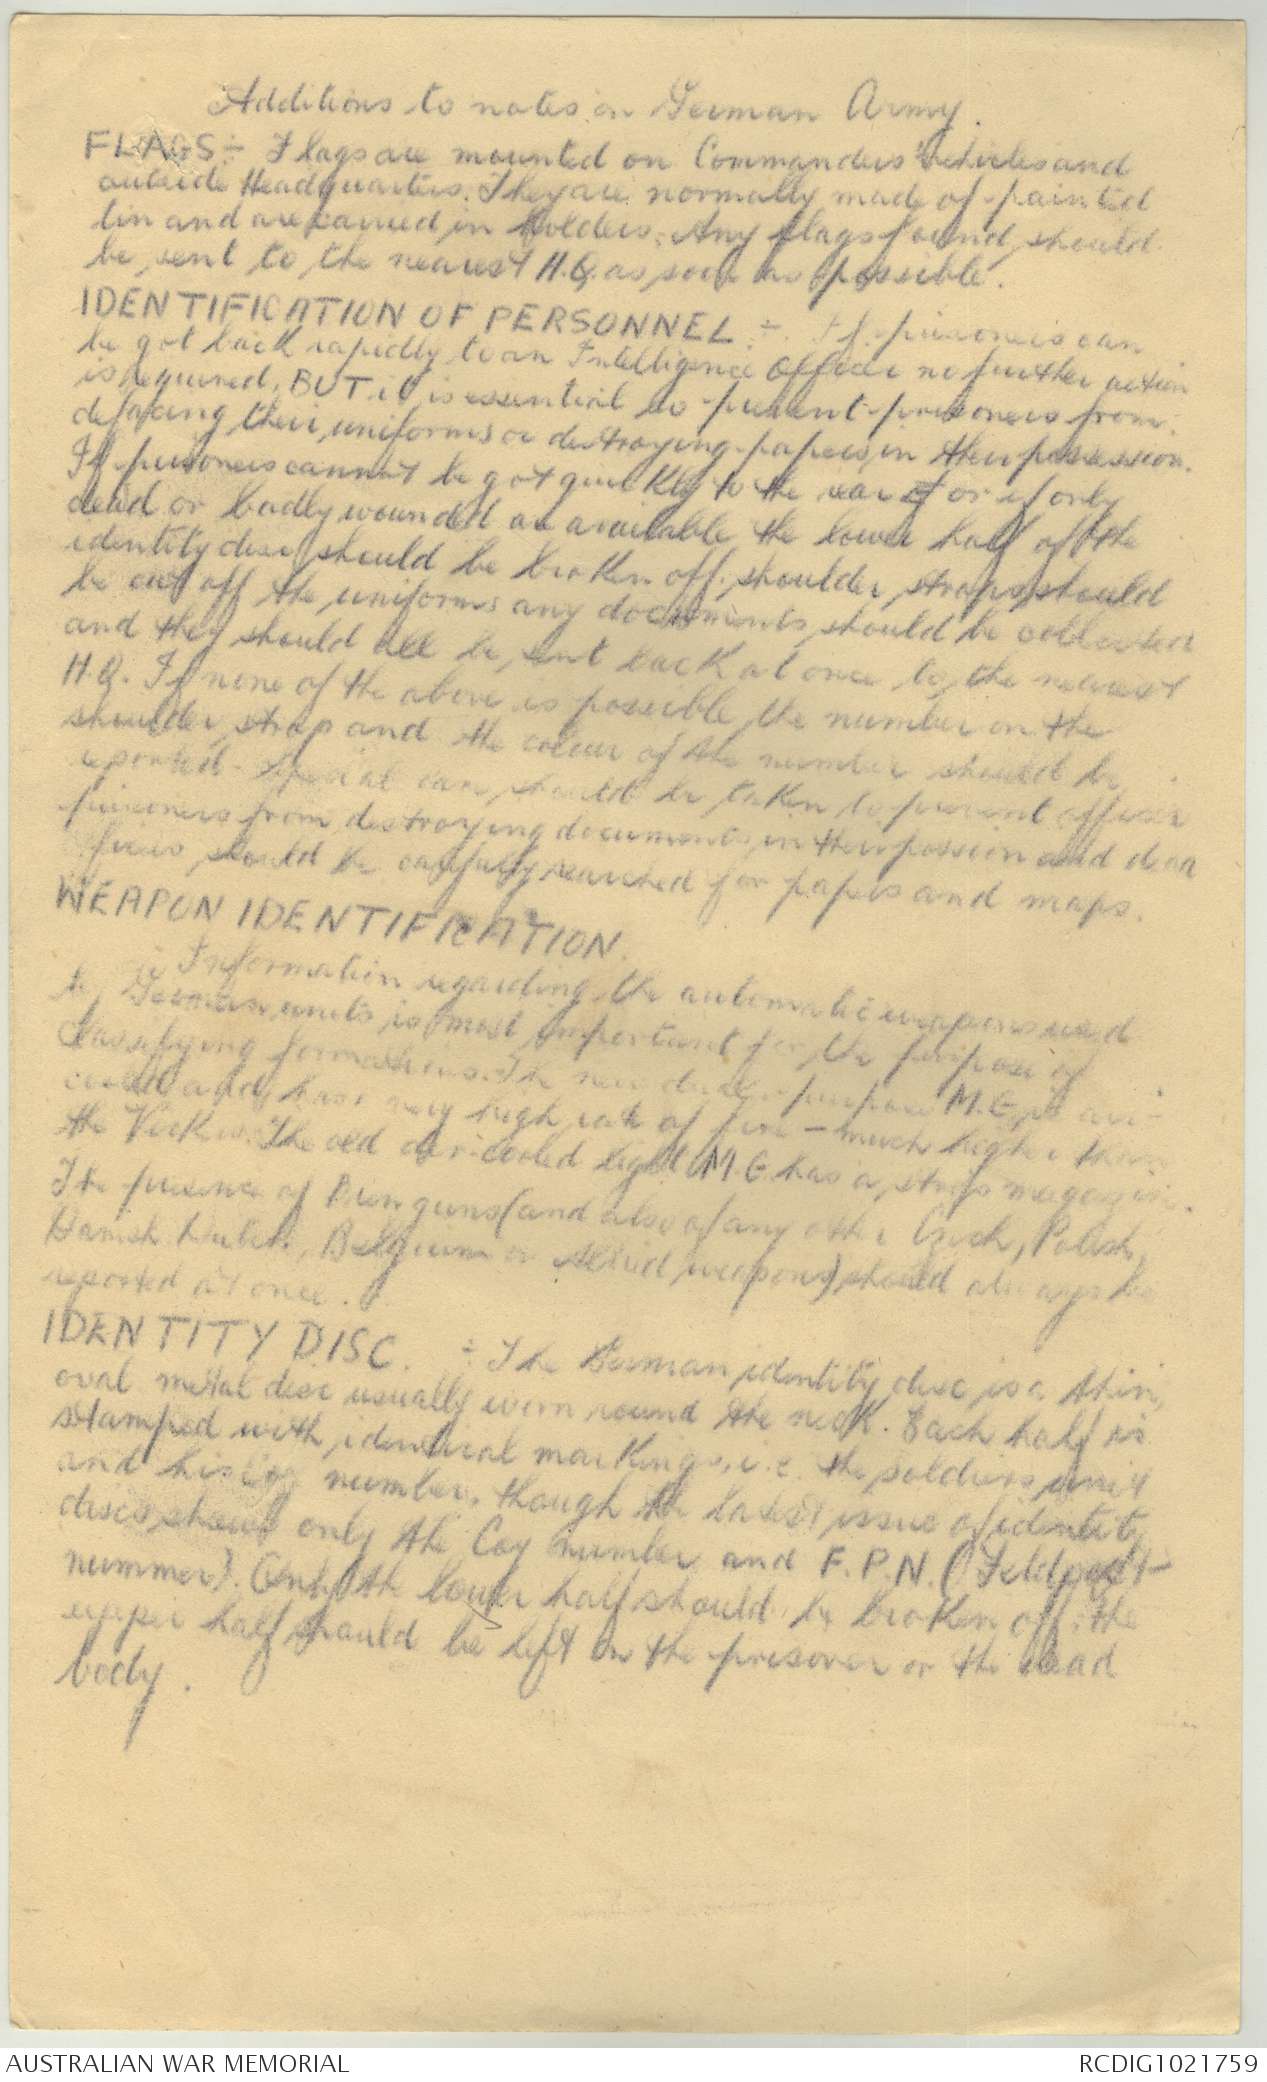 Additions to notes on German Army.
FLAGS:- Flags are mounted on Commanders' vehicles and
outside Headquarters. They are normally made of painted
tin and are carried in holders. Any flags found should
be sent to the nearest H.Q. as soon as possible.
IDENTIFICATION OF PERSONNEL :- If prisoners can
be got back rapidly to an Intelligence Officer no further action
is required, BUT it is essential to prevent prisoners from
defacing their uniforms or destroying papers in their possession.
If prisoners cannot be got quickly to the rear or if only
dead or badly wounded are available the lower half of the
identity disc should be broken off, shoulder straps should
be cut off the uniforms any documents should be collected
and they should all be sent back at once to the nearest
H.Q. If none of the above is possible the number on the
shoulder strap and the colour of the number should be
reported. Special care should be taken to prevent officer
prisoners from destroying documents in their possion and dead
should be carefully searched for papers and maps.
WEAPON IDENTIFICATION.
Information regarding the automatic weapons used
by German units is most important for the purpose of
classifying formations. The new dual-purpose M.G. is air-
cooled and has a very high rate of fire - much higher than
the Vickers. The old air-cooled light M.G. has a magazine.
The presence of Bren guns (and also of any other Czech, Polish,
Danish, Belgium or Allied weapons) should always be
reported at once.
IDENTITY DISC. :- The German identity disc is a thin,
oval metal disc usually worn round the neck. Each half is
stamped with identical markings, i.e. the soldiers unit
and his number, though the latest issue of identity
discs shows only the Coy number and F.P.N. (Feldpost-
nummer). Only the lower half should be broken off: the
upper half should be left on the prisoner or the dead
body.
AUSTRALIAN WAR MEMORIAL
RCDIG1021759